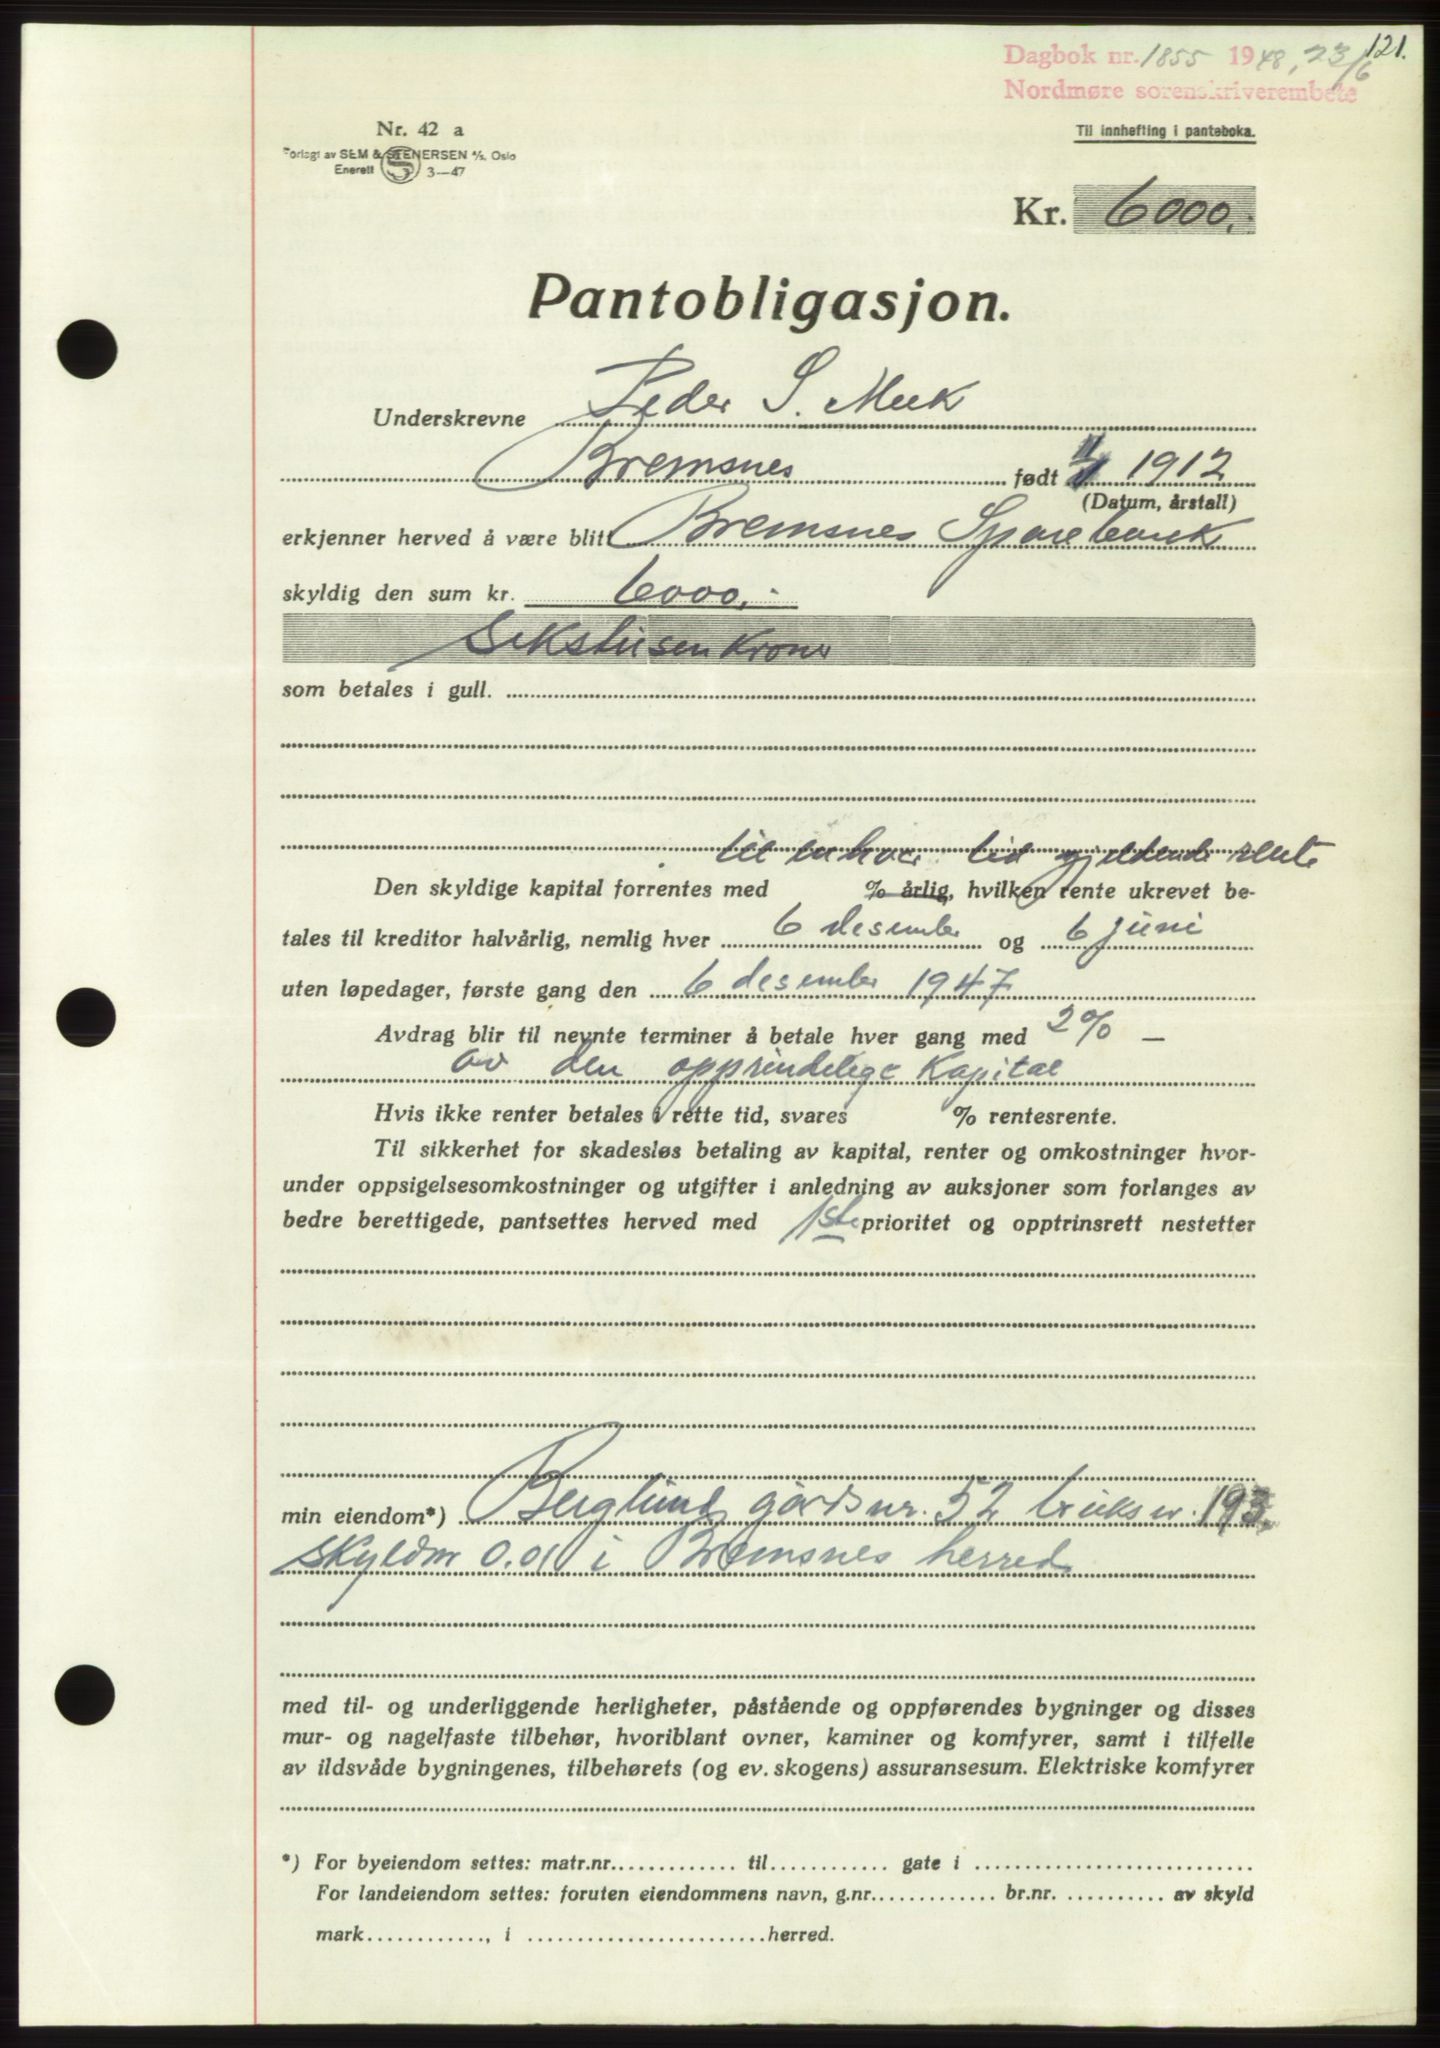 121.
Dagbok nr. 1855 1948, 23/6
Nordmøre sorenskriverembete
Nr. 42 a
Til innhefting i panteboka.
Forlagt av SEM & STENERSEN A/S, Oslo
Enerett S 3—47
Kr. 6000.-
Pantobligasjon.
Underskrevne Peder S. Meek
Bremsnes født 1912
(Datum, årstall)
erkjenner herved å være blitt Bremsnes Sparebank
skyldig den sum kr. 6000.-
Sekstusen kroner
som betales i gull.
til enhver tid gjeldende rente
Den skyldige kapital forrentes med % årlig, hvilken rente ukrevet be-
tales til kreditor halvårlig, nemlig hver 6 desember og 6 juni
uten løpedager, første gang den 6 desember 1947
Avdrag blir til nevnte terminer å betale hver gang med 2% —
av den opprindelige Kapital
Hvis ikke renter betales i rette tid, svares % rentesrente.
Til sikkerhet for skadesløs betaling av kapital, renter og omkostninger hvor-
under oppsigelsesomkostninger og utgifter i anledning av auksjoner som forlanges av
bedre berettigede, pantsettes herved med 1ste prioritet og opptrinsrett nestetter
min eiendom*) Berglund gårdsnr. 52 bruksnr. 193.
skyldm 0.01 i Bremsnes herred
med til- og underliggende herligheter, påstående og oppførendes bygninger og disses
mur- og nagelfaste tilbehør, hvoriblant ovner, kaminer og komfyrer, samt i tilfelle
av ildsvåde bygningenes, tilbehørets (og ev. skogens) assuransesum. Elektriske komfyrer
*) For byeiendom settes: matr.nr. til gate i
For landeiendom settes: foruten eiendommens navn, g.nr. br.nr. av skyld
mark , i herred.